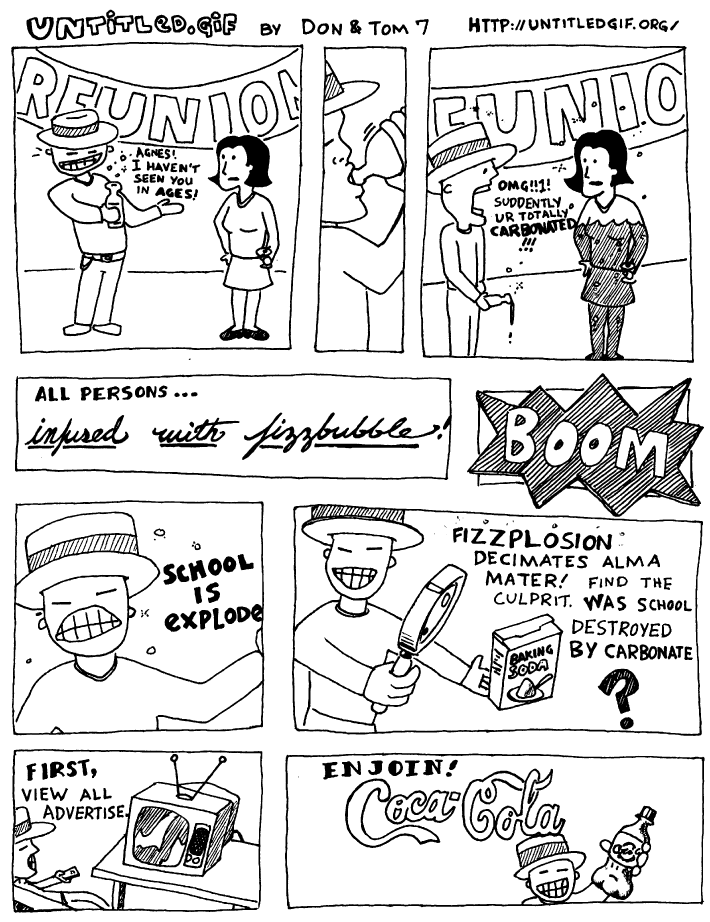 UNTiTLED.GiF BY DON & TOM 7 HTTP://UNTITLEDGIF.ORG/
REUNION
AGNES!
I HAVEN'T
SEEN YOU
IN AGES!
EUNIO
OMG!!1!
SUDDENLY
UR TOTALLY
CARBONATED
!!!
ALL PERSONS...
infused with fizzbubble!
BOOM
SCHOOL
IS
eXPLODe
FIZZPLOSION
DECIMATES ALMA
MATER! FIND THE
CULPRIT. WAS SCHOOL
DESTROYED
BY CARBONATE
?
BAKING
SODA
FIRST,
VIEW ALL
ADVERTISE.
ENJOIN!
Coca-Cola